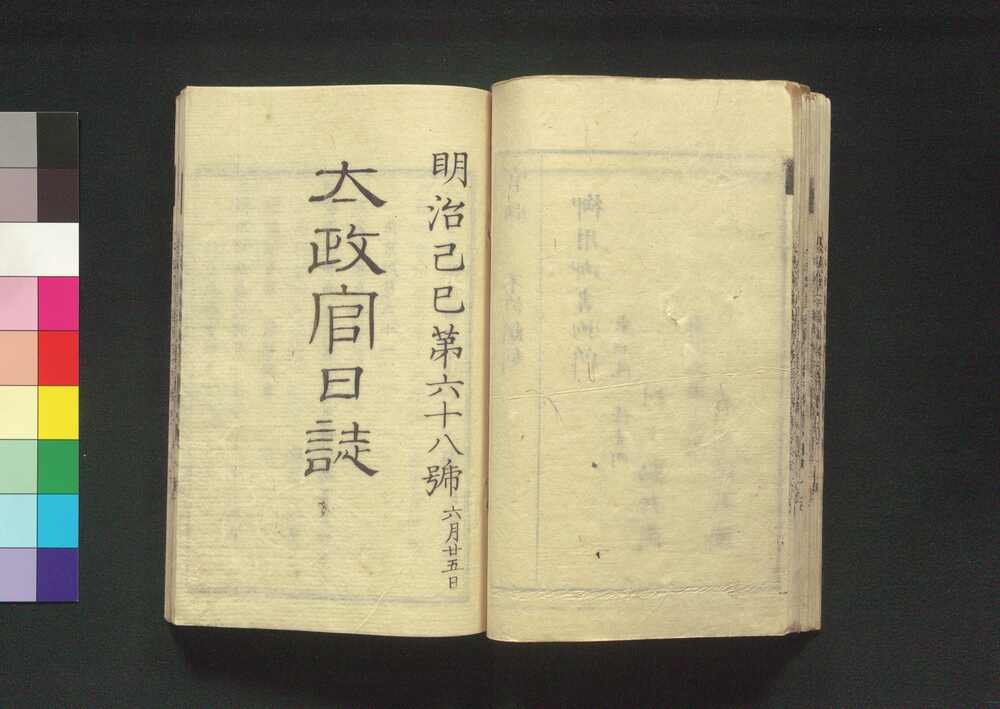 明治己巳第六十八號 六月廿五日
太政官日誌